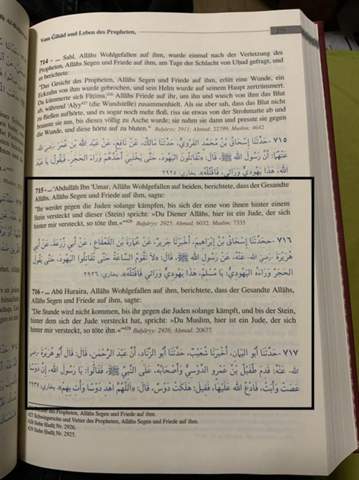 Vom Ǧihād und Leben des Propheten,
714 - ... Sahl, Allāhs Wohlgefallen auf ihm, wurde einmal nach der Verletzung des
Propheten, Allāhs Segen und Friede auf ihm, am Tage der Schlacht von Uḥud gefragt, und
er berichtete:
"Das Gesicht des Propheten, Allāhs Segen und Friede auf ihm, erlitt eine Wunde, ein
Eckzahn von ihm wurde gebrochen, und sein Helm wurde auf seinem Haupt zertrümmert.
Da kümmerte sich Fāṭima, Allāhs Friede auf ihr, um ihn und wusch von ihm das Blut
ab, während 'Alyy (die Wundstelle) zusammenhielt. Als sie aber sah, dass das Blut nicht
zu fließen aufhörte, und es sogar noch mehr floß, riss sie etwas von der Strohmatte ab und
brannte sie an, bis dieses völlig zu Asche wurde; sie nahm sie dann und presste sie gegen
die Wunde, und diese hörte auf zu bluten."
٧١٥ - حَدَّثَنَا إِسْحَاقُ بْنُ مُحَمَّدٍ الفَرْوِيُّ، حَدَّثَنَا مَالِكٌ، عَنْ نَافِعٍ، عَنْ عَبْدِ اللَّهِ بْنِ عُمَرَ رَضِيَ اللَّهُ
عَنْهُمَا: أَنَّ رَسُولَ اللَّهِ ﷺ، قَالَ: «تُقَاتِلُونَ اليَهُودَ، حَتَّى يَخْتَبِيَ أَحَدُهُمْ وَرَاءَ الحَجَرِ، فَيَقُولُ: يَا عَبْدَ
اللَّهِ، هَذَا يَهُودِيٌّ وَرَائِي، فَاقْتُلْهُ».
715 - ... 'Abdullāh Ibn 'Umar, Allāhs Wohlgefallen auf beiden, berichtete, dass der Gesandte
Allāhs, Allāhs Segen und Friede auf ihm, sagte:
"Ihr werdet gegen die Juden solange kämpfen, bis sich der eine von ihnen hinter einem
Stein versteckt und dieser (Stein) spricht: »Du Diener Allāhs, hier ist ein Jude, der sich
hinter mir versteckt, so töte ihn.«"
٧١٦ - حَدَّثَنَا إِسْحَاقُ بْنُ إِبْرَاهِيمَ، أَخْبَرَنَا جَرِيرٌ، عَنْ عُمَارَةَ بْنِ القَعْقَاعِ، عَنْ أَبِي زُرْعَةَ، عَنْ أَبِي
هُرَيْرَةَ رَضِيَ اللَّهُ عَنْهُ، عَنْ رَسُولِ اللَّهِ ﷺ، قَالَ: «لاَ تَقُومُ السَّاعَةُ حَتَّى تُقَاتِلُوا اليَهُودَ، حَتَّى يَقُولَ
الحَجَرُ وَرَاءَهُ اليَهُودِيُّ: يَا مُسْلِمُ، هَذَا يَهُودِيٌّ وَرَائِي فَاقْتُلْهُ». ٢٩٢٦
716 - ... Abū Huraira, Allāhs Wohlgefallen auf ihm, berichtete, dass der Gesandte Allāhs,
Allāhs Segen und Friede auf ihm, sagte:
"Die Stunde wird nicht kommen, bis ihr gegen die Juden solange kämpft, und bis der Stein,
hinter dem sich der Jude versteckt hat, spricht: »Du Muslim, hier ist ein Jude, der sich
hinter mir versteckt, so töte ihn.«"
٧١٧ - حَدَّثَنَا أَبُو اليَمَانِ، أَخْبَرَنَا شُعَيْبٌ، حَدَّثَنَا أَبُو الزِّنَادِ، أَنَّ عَبْدَ الرَّحْمَنِ، قَالَ: قَالَ أَبُو هُرَيْرَةَ رَضِيَ
اللَّهُ عَنْهُ: قَدِمَ طُفَيْلُ بْنُ عَمْرٍو الدَّوْسِيُّ وَأَصْحَابُهُ، عَلَى النَّبِيِّ ﷺ، فَقَالُوا: يَا رَسُولَ اللَّهِ، إِنَّ دَوْسًا
عَصَتْ وَأَبَتْ، فَادْعُ اللَّهَ عَلَيْهَا، فَقِيلَ: هَلَكَتْ دَوْسٌ، قَالَ: «اللَّهُمَّ اهْدِ دَوْسًا وَأْتِ بِهِمْ». ٢٩٣٧
des Propheten, Allāhs Segen und Friede auf ihm.
427 Schwiegersohn und Vetter des Propheten, Allāhs Segen und Friede auf ihm.
428 Siehe Ḥadīṯ Nr. 2926.
429 Siehe Ḥadīṯ Nr. 2925.